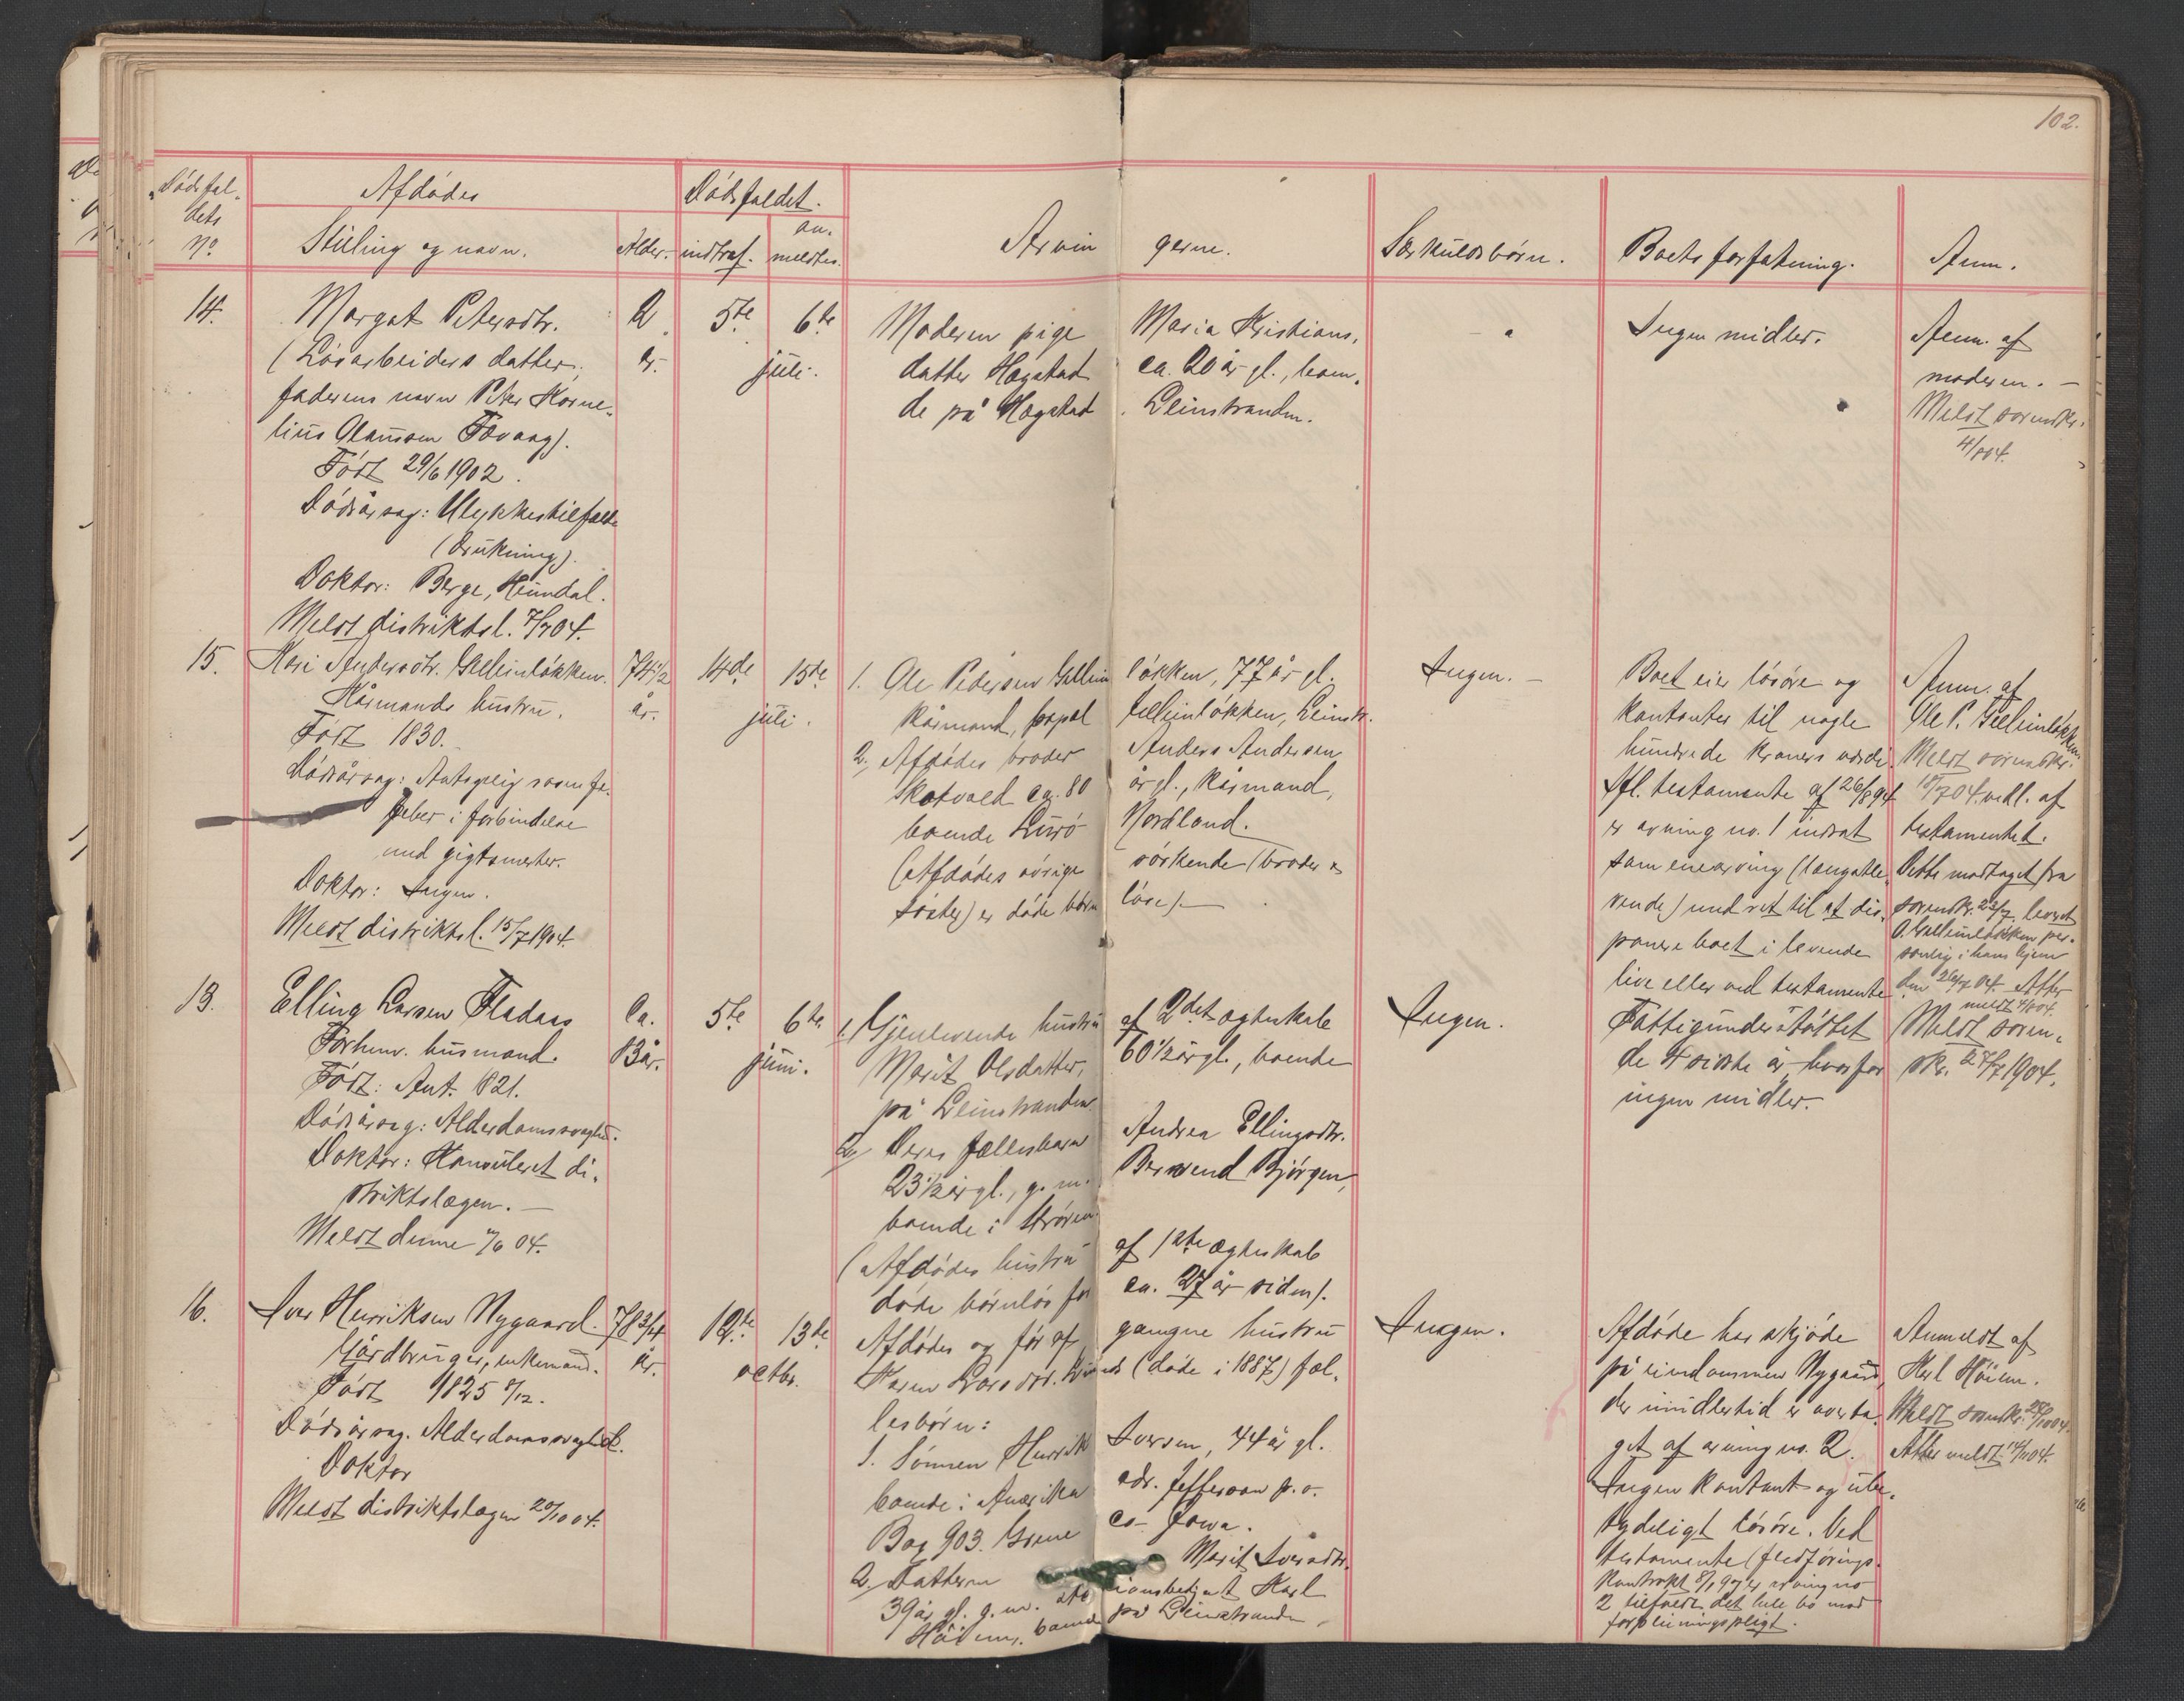 102.
Dødsfal-
dets
No.
Afdødes
Stilling og navn.
Alder.
Dødsfaldet.
indtraf.
an-
meldtes.
Arvin gerne.
Særkuldsbørn.
Boets forfatning.
Anm.
14.
Margot Petersdtr.
(Løsarbeiders datter.
faderens navn Peter Korne-
lius Olaussen
Født 29/6 1902.
Dødsårsag: Ulykkestilfælde
(drukning).
Doktor: Berge, Heimdal.
Meldt distriktsl. 7/7 04.
2
år.
5te 6te
juli.
Moderen pige Maria Kristians-
datter Hægstad ca. 20 år gl., boen-
de på Hægstad Leinstranden.
Ingen midler.
Anm. af
moderen. —
Meldt sorenskr.
15.
Kari Andersdtr. Gelleinløkken.
Kårmands hustru.
Født 1830.
Dødsårsag:
feber i forbindelse
med gigtsmerter.
Doktor: Ingen.
Meldt distriktsl. 15/7 1904.
74 1/2
år.
14de 15de
juli.
1. Ole Pedersen Gellein løkken, 77 år gl.
kårmand, bopæl Gelleinløkken, Leinstr.
2. Afdødes broder Anders Andersen
Skatvald ca. 80 år gl., kårmand,
boende Lurö Nordland.
(Afdødes øvrige søskende (broder &
søster) er døde børn løse). —
Ingen. —
Boet eier løsøre og
kontanter til nogle
hundrede kroners værdi.
Ifl. testamente af 26/8 94
er arving no. 1 indsat
som enearving (længstle-
vende) med ret til at dis-
ponere boet i levende
live eller ved testamente.
Anm. af
Ole P. Gelleinløkken
Meldt sorenskr.
vedl. af
testamentet.
Dette modtaget fra
sorenskr. 23/7, leveret
O. Gelleinløkken per-
sonlig i hans hjem
13.
Elling Larsen Fladaas
Forhenv. husmand.
Født: Ant. 1821.
Dødsårsag: Alderdomssvaghed.
Doktor: Konsuleret di-
striktslægen. —
Meldt denne 04.
Ca.
83 år.
5te 6te
juni.
1. Gjenlevende hustru af 2det ægteskab
Marit Olsdatter, 60 1/2 år gl., boende
på Leinstranden.
2. Deres fællesbarn Andrea Ellingsdtr.
23 1/2 år gl., g. m. Berntend Bjørgen,
boende i Støren.
(Afdødes hustru af 1ste ægteskab
døde barnløs for ca. 27 år siden).
Ingen.
Fattigunderstøttet
de 4 sidste år, hvorfor
ingen midler.
Meldt soren-
skr. 27/7 1904.
16.
Iver Henriksen Nygaard.
Gårdbruger, enkemand.
Født 1825 8/12.
Dødsårsag. Alderdomssvaghed.
Doktor
Meldt distriktslægen 20/10 04.
78 3/4
år.
12te 13de
octbr.
Afdødes og før af gangne hustru
Karen Larsdtr. (døde i 1887) fæl-
lesbørn:
1. Sønnen Henrik Iversen, 44 år gl.
boende i Amerika adr. Jefferson p. o.
Box 903. Grene co- Jowa.
2. Datteren Marit Iversdtr.
39 år gl. g. m. stationsbetjent Karl
Høiem, boende på Leinstranden.
Ingen.
Afdøde har skjøde
på eiendommen Nygaard,
der imidlertid er overta-
get af arving no. 2.
Ingen kontant og ube-
tydeligt løsøre. Ved
testamente (fledførings-
kontrakt er arving no
2 tilfaldt det hele bo mod
forpleiningspligt.
Anmeldt af
Karl Høiem.
Meldt sorenskr.
Atter meldt